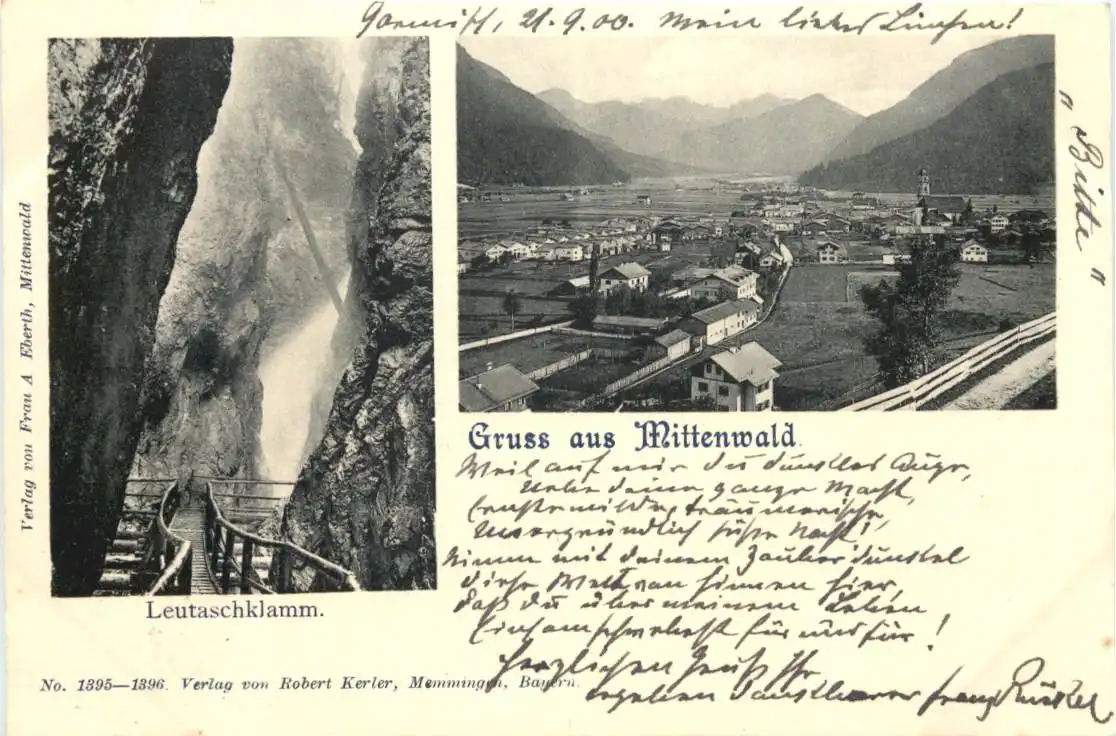 Garmisch, 21.9.00. Mein liebes Linchen!
"Bitte"
Gruss aus Mittenwald.
Weil' auf mir du dunkles Auge,
Uebe deine ganze Macht,
Ernste milde, träumerische
Unergründlich süße Nacht!
Nimm mit deinem Zauberdunkel
diese Welt von hinnen hier,
daß du über meinem Leben
Einsam schwebest für und für!
Herzlichen Gruß Ihr
ergebener dankbarer Franz
Leutaschklamm.
Verlag von Frau A Eberth, Mittenwald
No. 1395—1396. Verlag von Robert Kerler, Memmingen, Bayern.